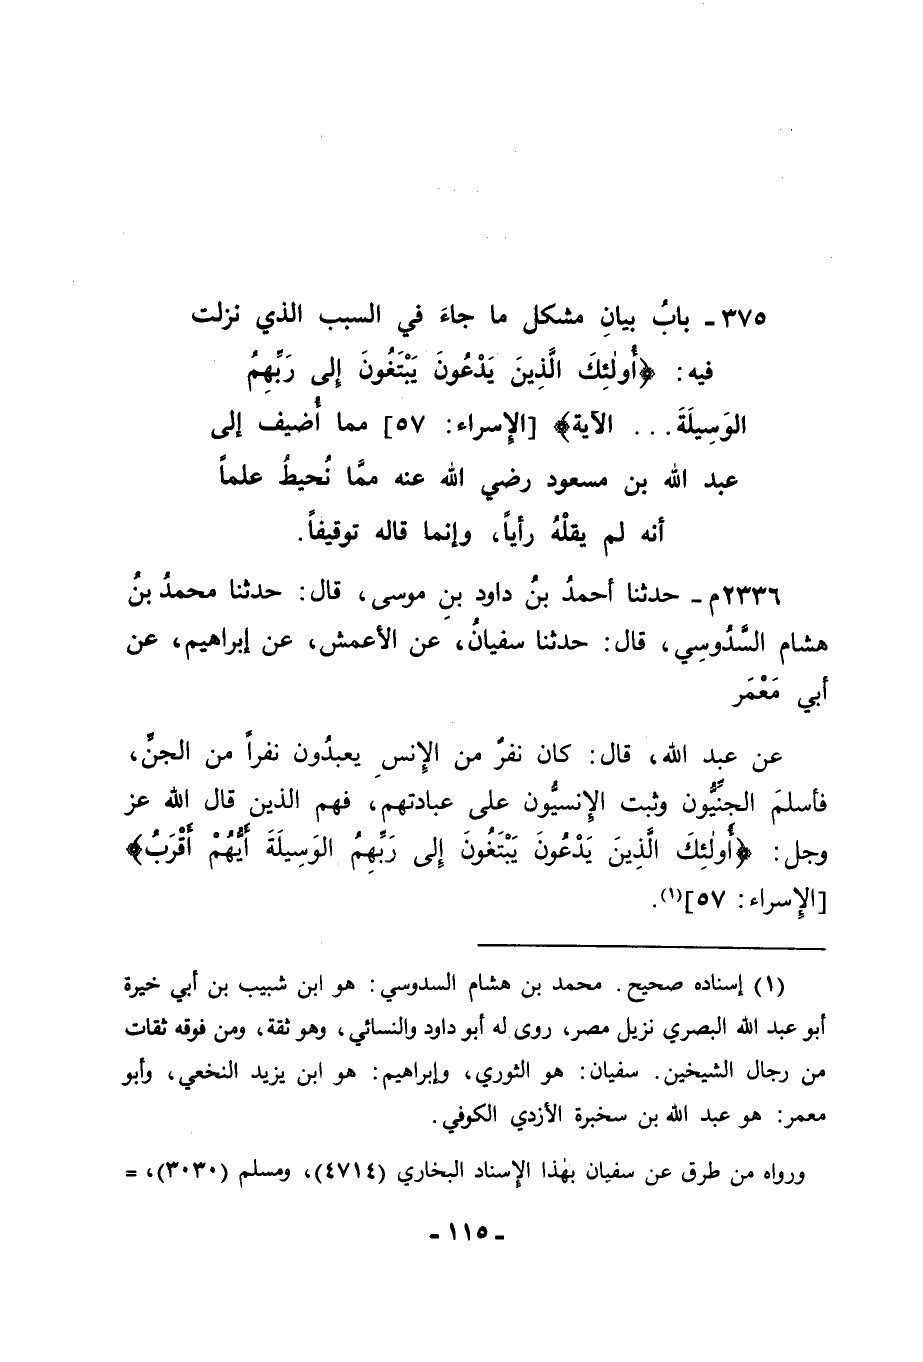 ٣٧٥ـ بابُ بيانِ مشكل ما جاءَ في السبب الذي نزلت
فيه: ﴿أُولٰئِكَ الَّذِينَ يَدْعُونَ يَبْتَغُونَ إِلى رَبِّهِمُ
الوَسِيلَةَ... الآية﴾ [الإسراء: ٥٧] مما أُضيف إلى
عبد الله بن مسعود رضي الله عنه ممَّا نُحيطُ علماً
أنه لم يقلْهُ رأياً، وإنما قاله توقيفاً.
٢٣٣٦م ـ حدثنا أحمدُ بنُ داود بنِ موسى، قال: حدثنا محمدُ بنُ
هشام السَّدُوسِي، قال: حدثنا سفيانُ، عن الأعمش، عن إبراهيم، عن
أبي مَعْمَر
عن عبد الله، قال: كان نفرٌ من الإنسِ يعبدُون نفراً من الجنِّ،
فأسلمَ الجنِّيُّون وثبت الإنسيُّون على عبادتهم، فهم الذين قال الله عز
وجل: ﴿أُولٰئِكَ الَّذِينَ يَدْعُونَ يَبْتَغُونَ إِلى رَبِّهِمُ الوَسِيلَةَ أَيُّهُمْ أَقْرَبُ﴾
[الإسراء: ٥٧](١).
(١) إسناده صحيح. محمد بن هشام السدوسي: هو ابن شبيب بن أبي خيرة
أبو عبد الله البصري نزيل مصر، روى له أبو داود والنسائي، وهو ثقة، ومن فوقه ثقات
من رجال الشيخين. سفيان: هو الثوري، وإبراهيم: هو ابن يزيد النخعي، وأبو
معمر: هو عبد الله بن سخبرة الأزدي الكوفي.
ورواه من طرق عن سفيان بهٰذا الإسناد البخاري (٤٧١٤)، ومسلم (٣٠٣٠)، =
ـ ١١٥ ـ